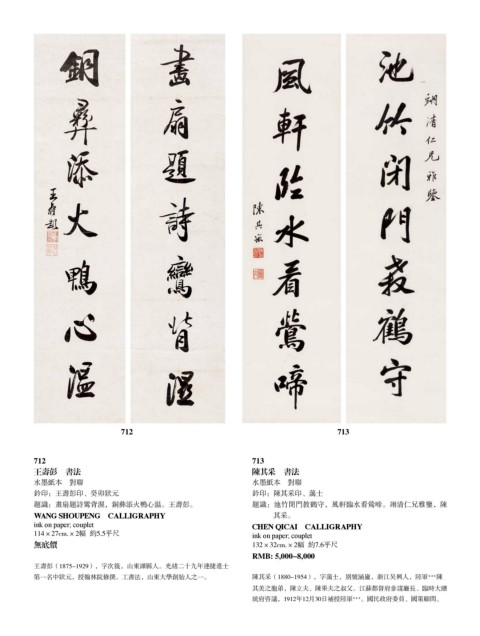 畫扇題詩鸞背濕
銅彝添火鴨心溫
王壽彭
翊清仁兄雅鑒
池竹閉門教鶴守
風軒臨水看鶯啼
陳其采
712
713
712
王壽彭 書法
水墨紙本 對聯
鈐印：王壽彭印、癸卯狀元
題識：畫扇題詩鸞背濕，銅彝添火鴨心溫。王壽彭。
WANG SHOUPENG CALLIGRAPHY
ink on paper; couplet
114×27cm.×2幅 約5.5平尺
無底價
王壽彭（1875~1929），字次籛，山東濰縣人。光緒二十九年連捷進士
第一名中狀元，授翰林院修撰。工書法，山東大學創始人之一。
713
陳其采 書法
水墨紙本 對聯
鈐印：陳其采印、藹士
題識：池竹閉門教鶴守，風軒臨水看鶯啼。翊清仁兄雅鑒，陳
其采。
CHEN QICAI CALLIGRAPHY
ink on paper; couplet
132×32cm.×2幅 約7.6平尺
RMB: 5,000~8,000
陳其采（1880~1954），字藹士，別號涵廬，浙江吳興人，陸軍***陳
其美之胞弟，陳立夫、陳果夫之叔父。江蘇都督府參謀廳長、臨時大總
統府咨議，1912年12月30日補授陸軍***。國民政府委員、國策顧問。